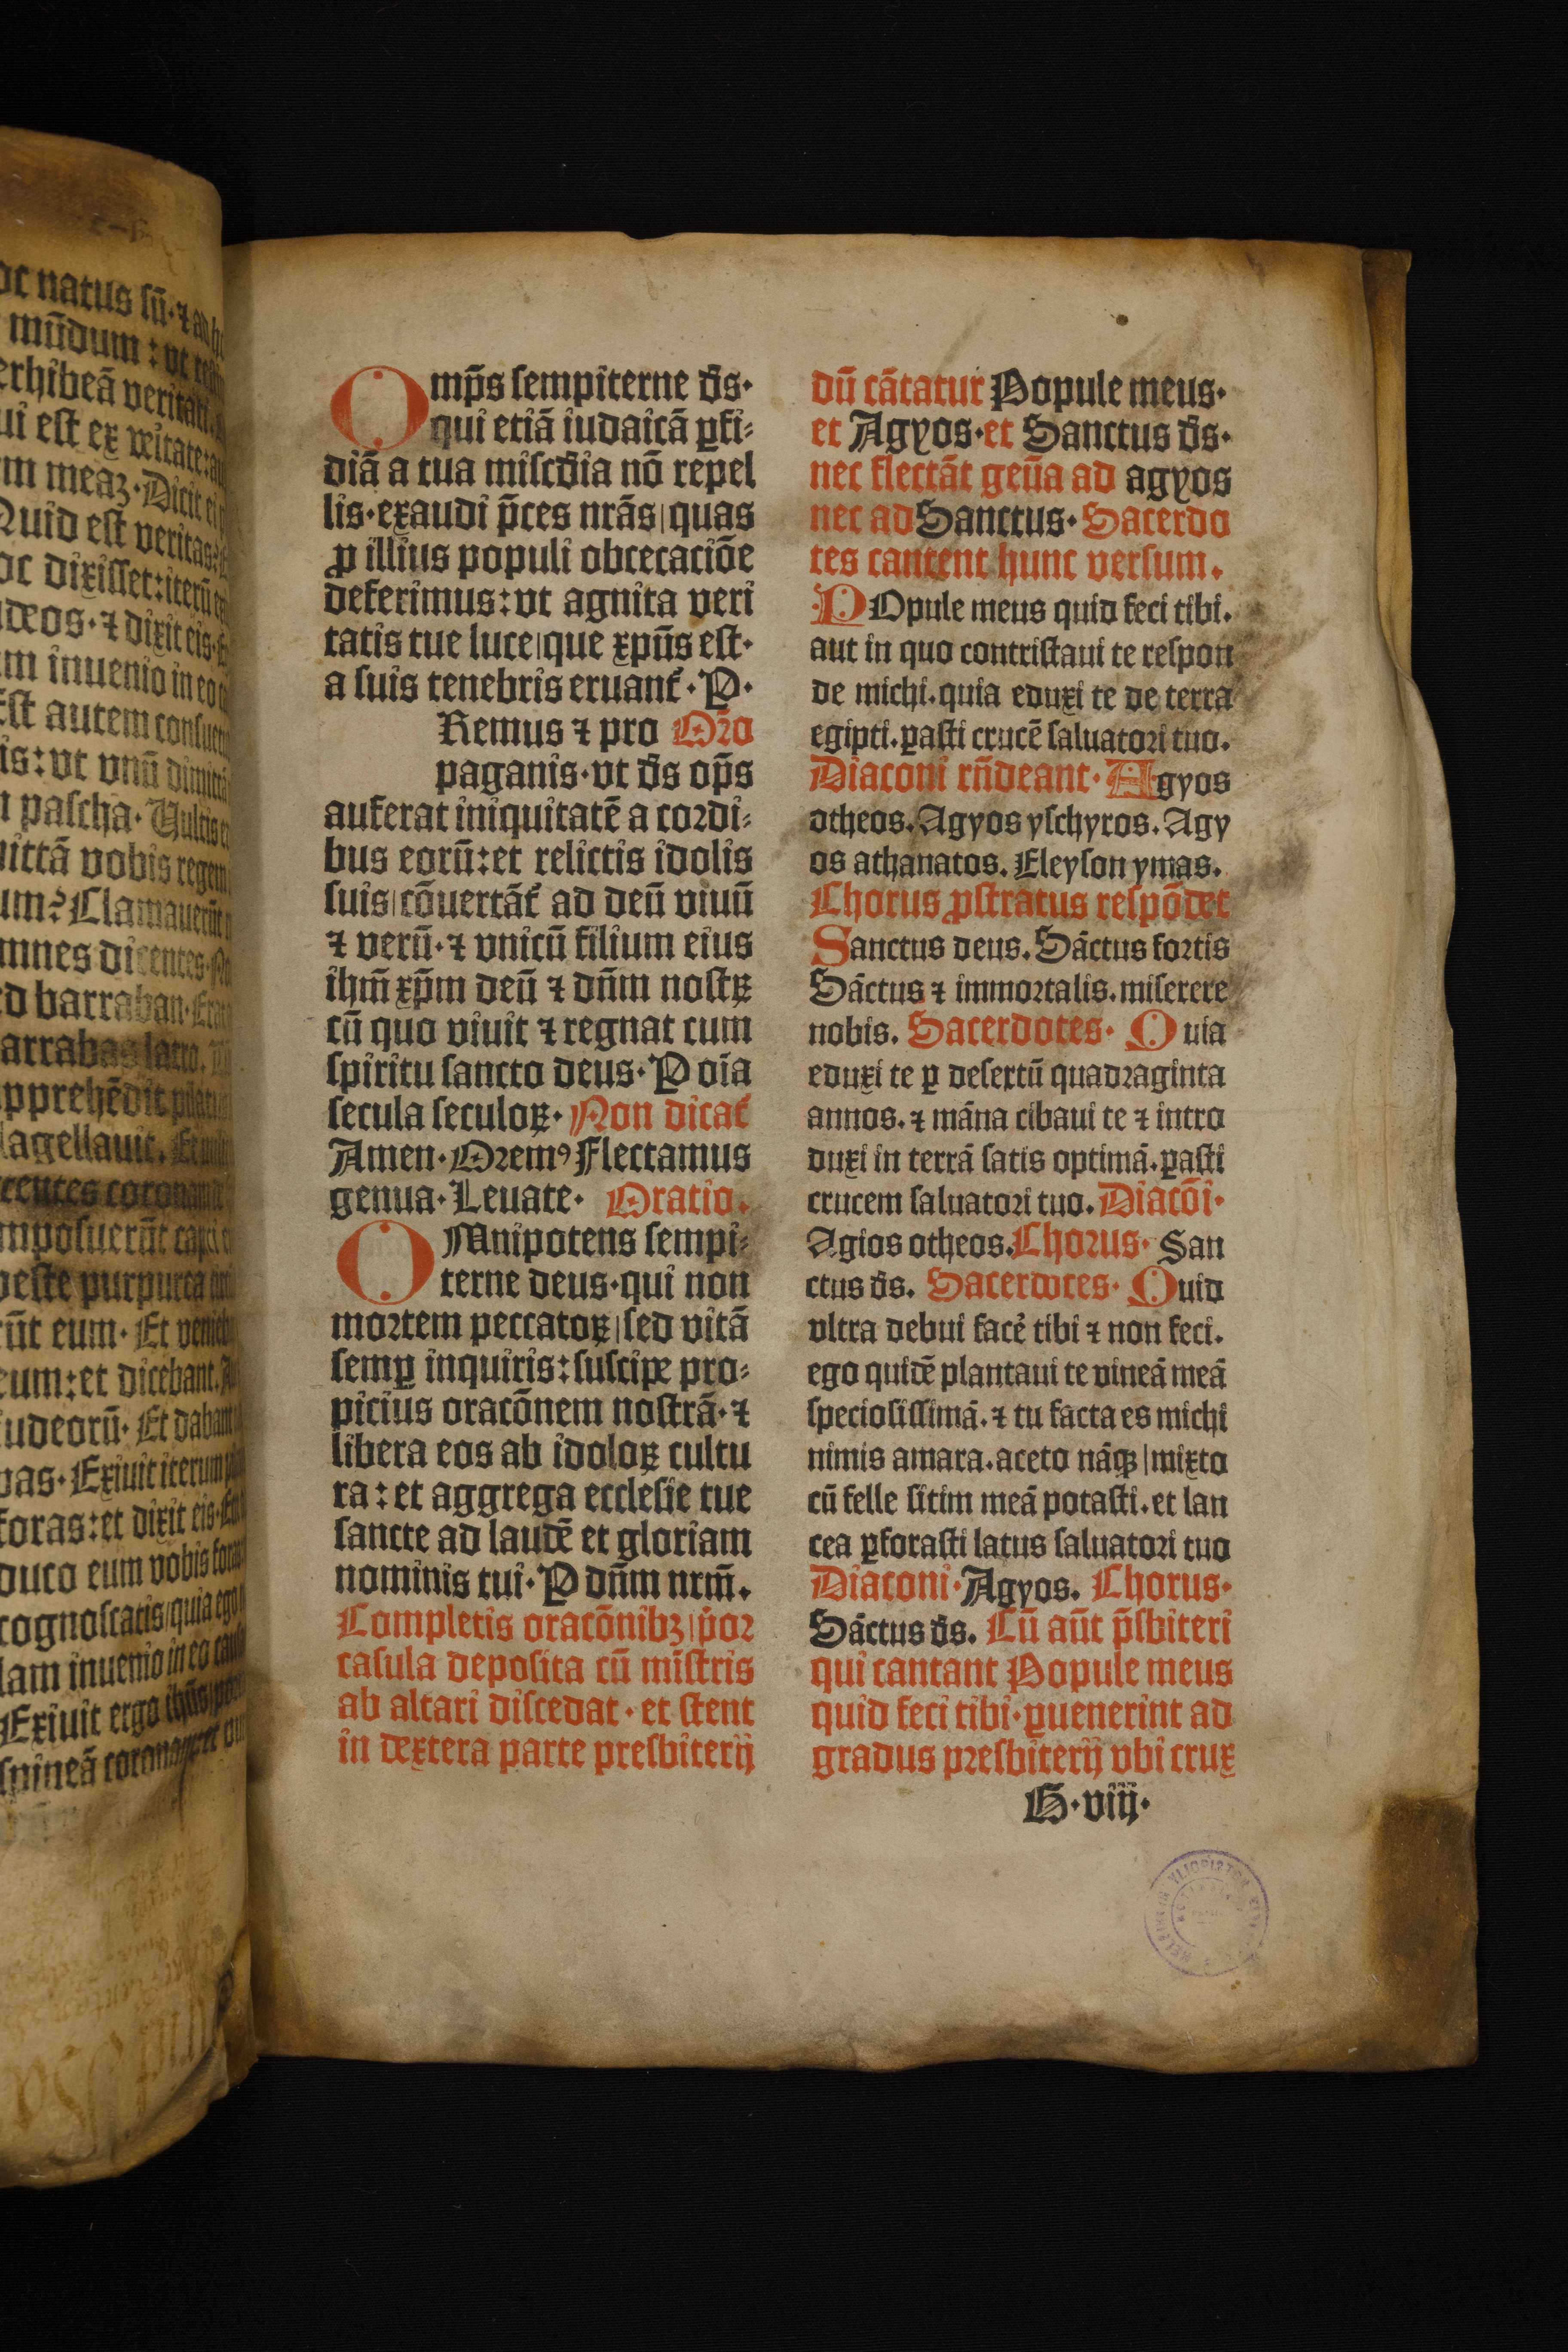 oc natus sū·⁊ ad
mūdum:vt
erhibeā veritati
ui est ex veritate:
m meaꝫ·Dicit ei
Quid est veritas
oc dixisset:iterū
deos·⁊ dixit eis·
m inuenio in eo
Est autem consuetu
is:vt vnū dimittā
pascha·Vultis
mittā vobis regem
um?Clamauerūt
mnes dicentes·
ed barraban·Erat
arrabas latro.
pprehēdit
lagellauit.
mposuerūt capiti
veste purpurea
ūt eum·Et venieb
eum:et dicebant.
iudeorū·Et dabant
pas·Exiuit iterum
foras:et dixit eis·
duco eum vobis foras
cognoscatis|quia ego
lam inuenio in eo
Exiuit ergo ihūs
spineā
Omp̄s sempiterne d̄s·
qui etiā iudaicā ꝑfi⸗
diā a tua misc̄dia nō repel
lis·exaudi p̄ces nrās|quas
ꝓ illius populi obcecaciōe
deferimus:vt agnita veri
tatis tue luce|que xpūs est·
a suis tenebris eruant᷑·P·
Remus ⁊ pro Oro
paganis·vt d̄s op̄s
auferat iniquitatē a cordi⸗
bus eorū:et relictis idolis
suis|cōuertāt᷑ ad deū viuū
⁊ verū·⁊ vnicū filium eius
ihm̄ xp̄m deū ⁊ dn̄m nostꝝ
cū quo viuit ⁊ regnat cum
spiritu sancto deus·P oīa
secula seculoꝝ·Non dicat᷑
Amen·Oremꝰ Flectamus
genua·Leuate· Oratio.
OMnipotens sempi⸗
terne deus·qui non
mortem peccatoꝝ|sed vitā
semꝑ inquiris:suscipe pro⸗
picius oracōnem nostrā·⁊
libera eos ab idoloꝝ cultu
ra:et aggrega ecclesie tue
sancte ad laudē et gloriam
nominis tui·P dn̄m nrm̄.
Completis oracōnibꝫ|p̄or
casula deposita cū mīstris
ab altari discedat·et stent
in dextera parte presbiterij
dū cātatur Popule meus·
et Agyos·et Sanctus d̄s·
nec flectāt genūa ad agyos
nec ad Sanctus·Sacerdo
tes cantent hunc versum.
POpule meus quid feci tibi.
aut in quo contristaui te respon
de michi.quia eduxi te de terra
egipti.ꝑasti crucē saluatori tuo.
Diaconi rn̄deant·Agyos
otheos.Agyos yschyros.Agy
os athanatos.Eleyson ymas.
Chorus ꝓstratus respōdet
Sanctus deus.Sāctus fortis
Sāctus ⁊ immortalis.miserere
nobis.Sacerdotes· Quia
eduxi te ꝑ desertū quadraginta
annos.⁊ māna cibaui te ⁊ intro
duxi in terrā satis optimā.ꝑasti
crucem saluatori tuo.Diacōi·
Agios otheos.Chorus·San
ctus d̄s.Sacerdotes·Quid
vltra debui facē tibi ⁊ non feci.
ego quidē plantaui te vineā meā
speciosissimā.⁊ tu facta es michi
nimis amara.aceto nāqꝫ|mixto
cū felle sitim meā potasti.et lan
cea ꝑforasti latus saluatori tuo
Diaconi·Agyos. Chorus·
Sāctus d̄s. Cū aūt p̄sbiteri
qui cantant Popule meus
quid feci tibi·ꝑuenerint ad
gradus presbiterij vbi crux
G·viij·